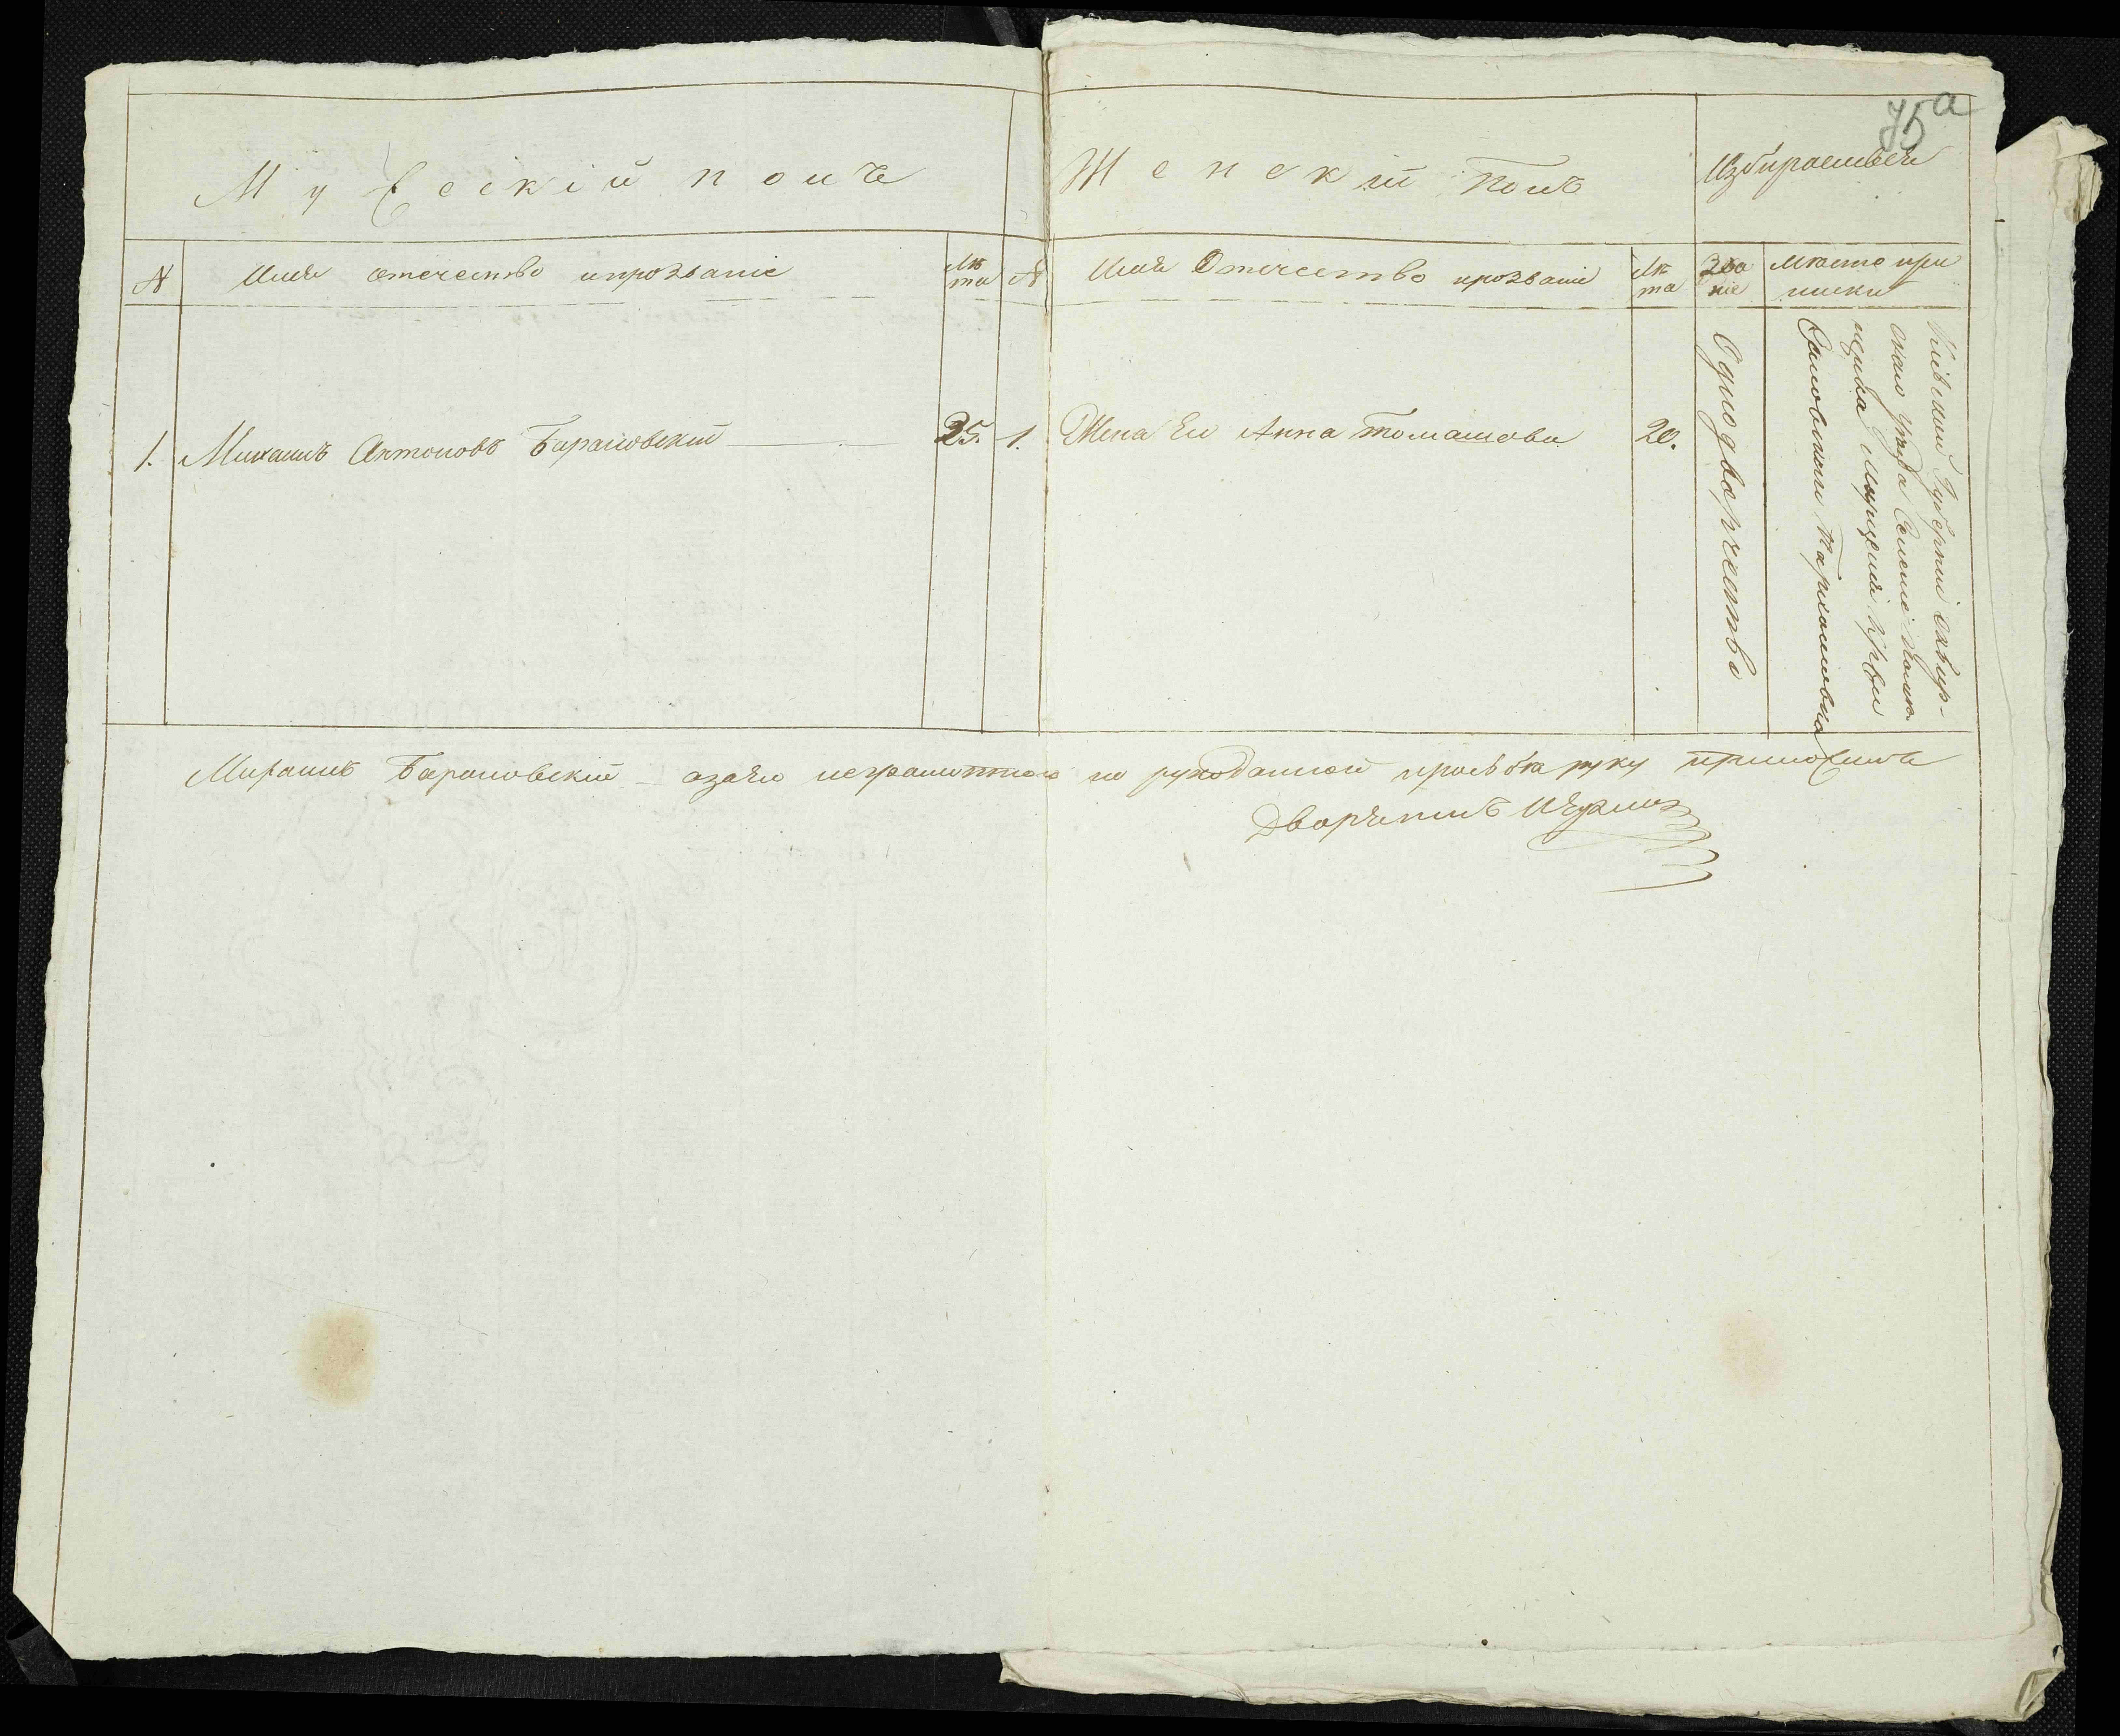 75а
Мужескій полъ
Женскій полъ
Избираемыя
№
Имя отечество ипрозваніе
Лѣ
та
№
Имя Отечество ипрозваніе
Лѣ
та
Зва
ніе
Мѣсто при
писки
1.
Михаилъ Антоновъ Барановскій
25.
1.
Жена Ею Анна Томашова
20.
Однодворчество
Кіевской Губерніи сквир-
скаго уѣзда Селеніе
Михаилъ Барановскій азаего неграмотного по рукоданной прозьбѣ руку приложилъ
Дворянинъ